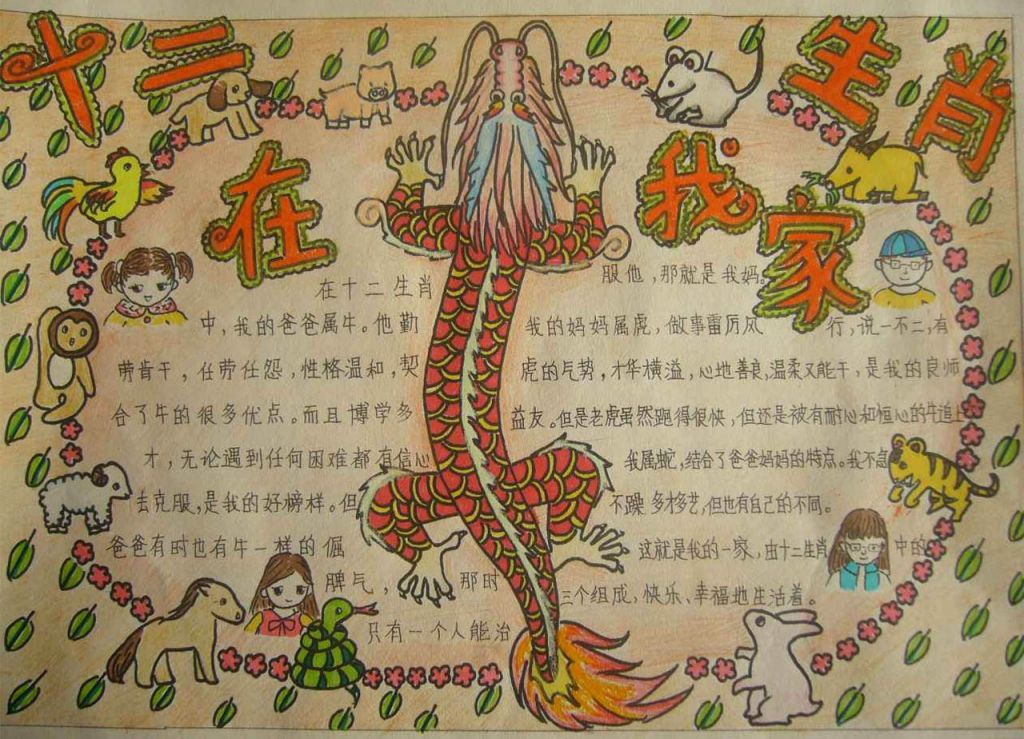 十二生肖
在我家
在十二生肖
中，我的爸爸属牛。他勤
劳肯干，任劳任怨，性格温和，契
合了牛的很多优点。而且博学多
才，无论遇到任何困难都有信心
去克服，是我的好榜样。但
爸爸有时也有牛一样的倔
脾气，那时
只有一个人能治
服他，那就是我妈。
我的妈妈属虎，做事雷厉风行，说一不二，有
虎的气势，才华横溢，心地善良，温柔又能干，是我的良师
益友。但是老虎虽然跑得很快，但还是被有耐心和恒心的牛追上
我属蛇，结合了爸爸妈妈的特点。我不急
不躁多才多艺，但也有自己的不同。
这就是我的一家，由十二生肖中的
三个组成，快乐、幸福地生活着。